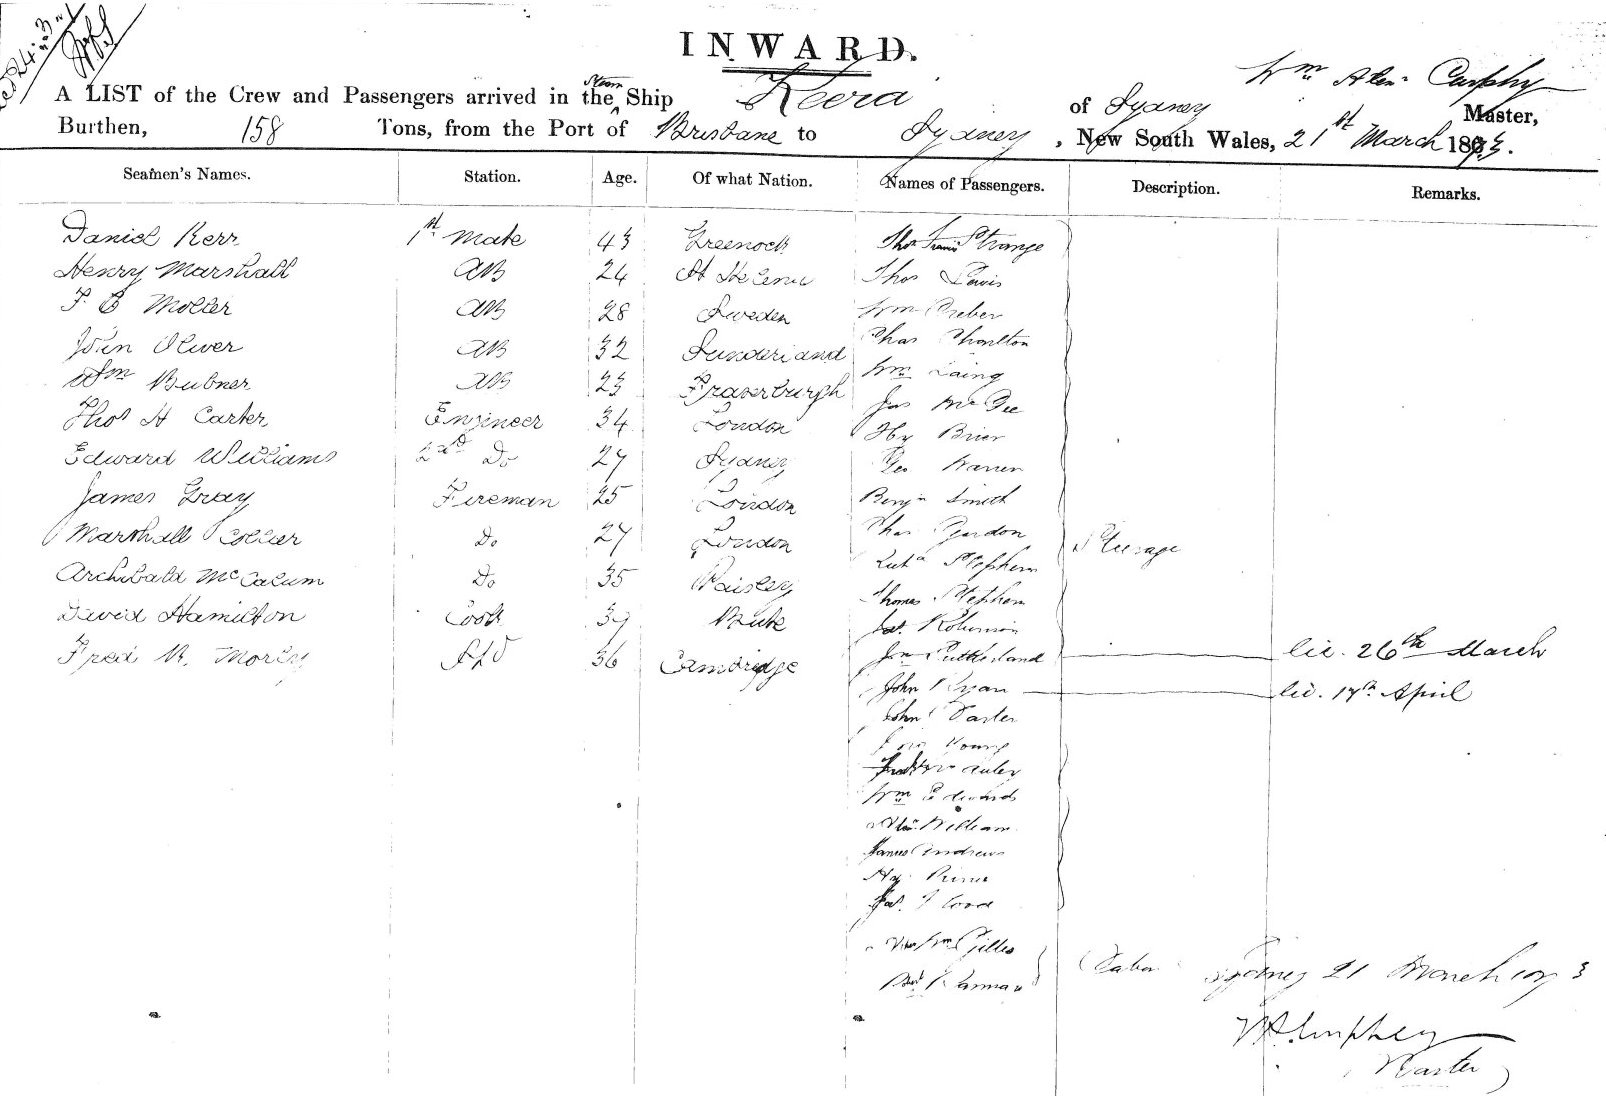 INWARD.
Wm Alexr Curphy
A LIST of the Crew and Passengers arrived in the Steam Ship Keera of Sydney Master,
Burthen, 158 Tons, from the Port of Brisbane to Sydney, New South Wales, 21st March 1873.
Seamen's Names. Station. Age. Of what Nation. Names of Passengers. Description. Remarks.
Daniel Kerr 1st Mate 43 Greenock Thos Francis Strange
Henry Marshall AB 24 St Helena Thos Lewis
F C Moller AB 28 Sweden Wm Creber
John Oliver AB 32 Sunderland Chas Charlton
Wm Bubner AB 23 Fraserburgh Wm Laing
Thos H Carter Engineer 34 London Jas McGee
Hy Brier
Edward Williams 2nd Do 27 Sydney Geo Warren
James Gray Fireman 25 London Benjn Smith
Marshall Collier Do 27 London Chas Gordon
Steerage
Stephens
Archibald McCalum Do 35 Paisley Thomas Stephen
David Hamilton Cook 39 Bute Jas. Robinson
Fred W. Morley Std 36 Cambridge Jno Sutherland lic. 26th March
John Ryan lic. 17th April
John
Young
Wm Edwards
William
James Andrews
Hy
Jas.
Wm Gillis Cabin Sydney 21 March 1873
Curphey
Master